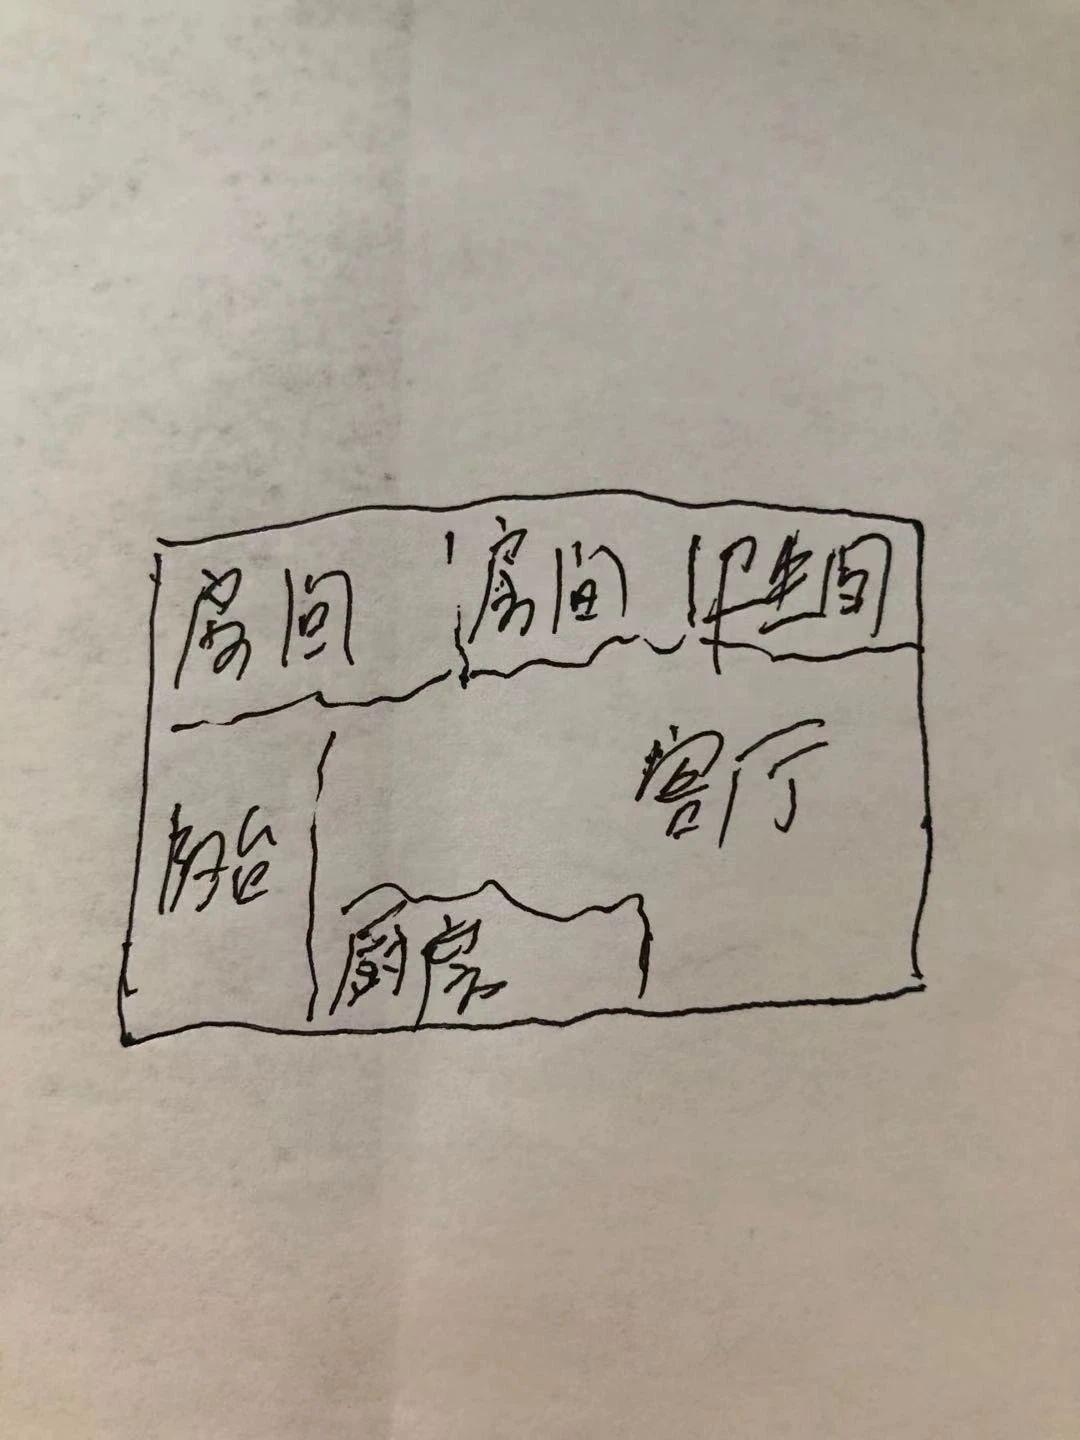 房间 房间 卫生间
客厅
阳台
厨房